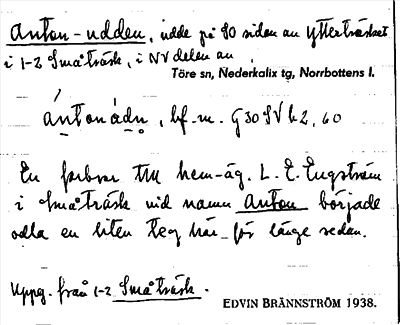 Anton-udden, udde på SO sidan av Ytterträsket
i 1-2 Småträsk, i NV delen av
Töre sn, Nederkalix tg, Norrbottens l.
ántonádn, bf. m. G30SV62, 60
En farbror till hem-äg. L. E. Engström
i Småträsk vid namn Anton började
odla en liten teg här för länge sedan.
Uppg. från 1-2 Småträsk.
EDVIN BRÄNNSTRÖM 1938.